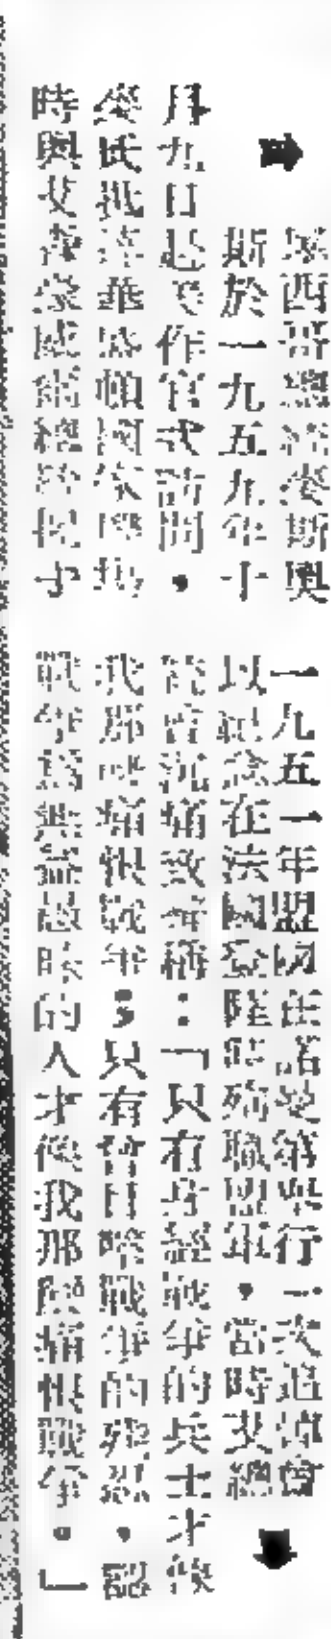 墨西哥總統麥斯奧
斯於一九五九年十
月九日起 作官式訪問。
麥氏抵達華盛頓國家機場
時與艾森豪威爾總統握手
一九五一年盟國在諾曼第舉行一次追悼會
以紀念在法國登陸時殉職盟軍，當時艾總
統曾沉痛致 稱：「只有身經戰爭的兵士才能
我那 痛恨戰爭；只有曾目擊戰爭的殘忍，認
戰爭爲無益愚昧的人才像我那麼痛恨戰爭。」